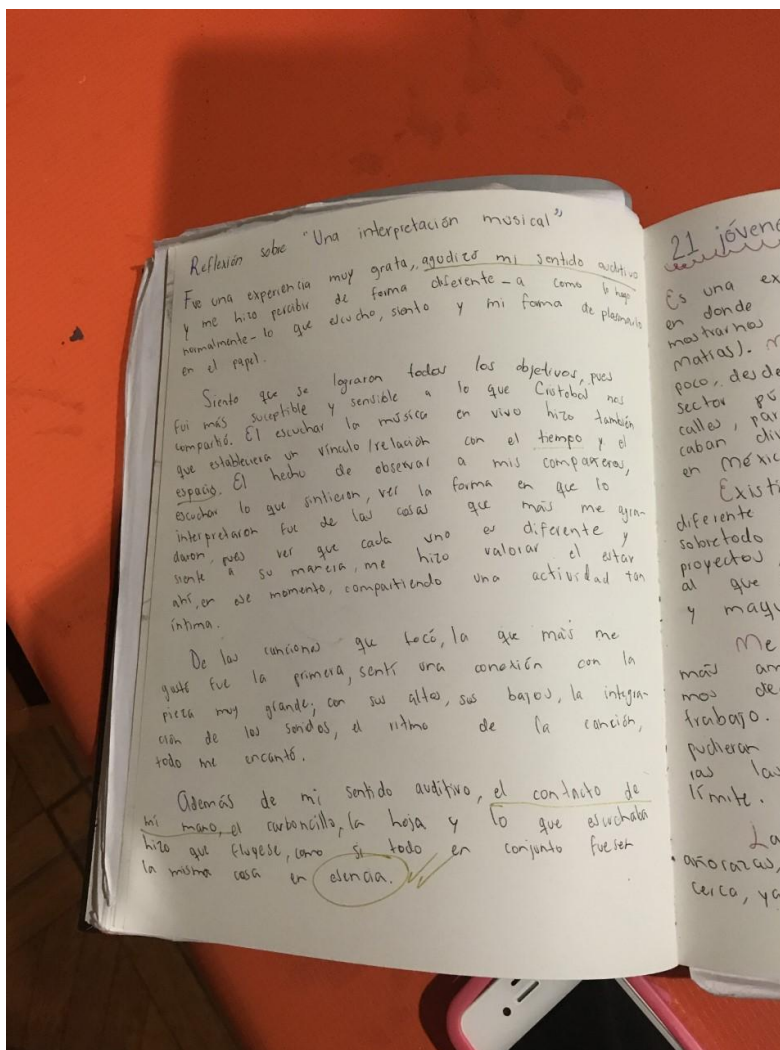 Reflexión sobre "Una interpretación musical"
Fue una experiencia muy grata, agudizó mi sentido auditivo
y me hizo percibir de forma diferente - a como lo hago
normalmente - lo que escucho, siento y mi forma de plasmarlo
en el papel.
Siento que se lograron todos los objetivos, pues
fui más suceptible y sensible a lo que Cristobal nos
compartió. El escuchar la música en vivo hizo también
que estableciera un vínculo/relación con el tiempo y el
espacio. El hecho de observar a mis compañeros,
escuchar lo que sintieron, ver la forma en que lo
interpretaron fue de las cosas que más me agra-
daron, pues ver que cada uno es diferente y
siente a su manera, me hizo valorar el estar
ahí, en ese momento, compartiendo una actividad tan
íntima.
De las canciones que tocó, la que más me
gustó fue la primera, sentí una conexión con la
pieza muy grande; con sus altos, sus bajos, la integra-
ción de los sonidos, el ritmo de la canción,
todo me encantó.
Además de mi sentido auditivo, el contacto de
mi mano, el carboncillo, la hoja y lo que escuchaba
hizo que fluyese, como si todo en conjunto fuesen
la misma cosa en esencia.
21 jóvene
Es una ex
en donde
mostrarnos
matias).
poco, desde
sector pú
calles, par
caban div
en Méxic
Existi
diferente
sobretodo
proyectos
al que
y maqu
Me
más am
mos de
trabajo.
pudieran
las las
límite.
La
añorazas,
cerca, ya